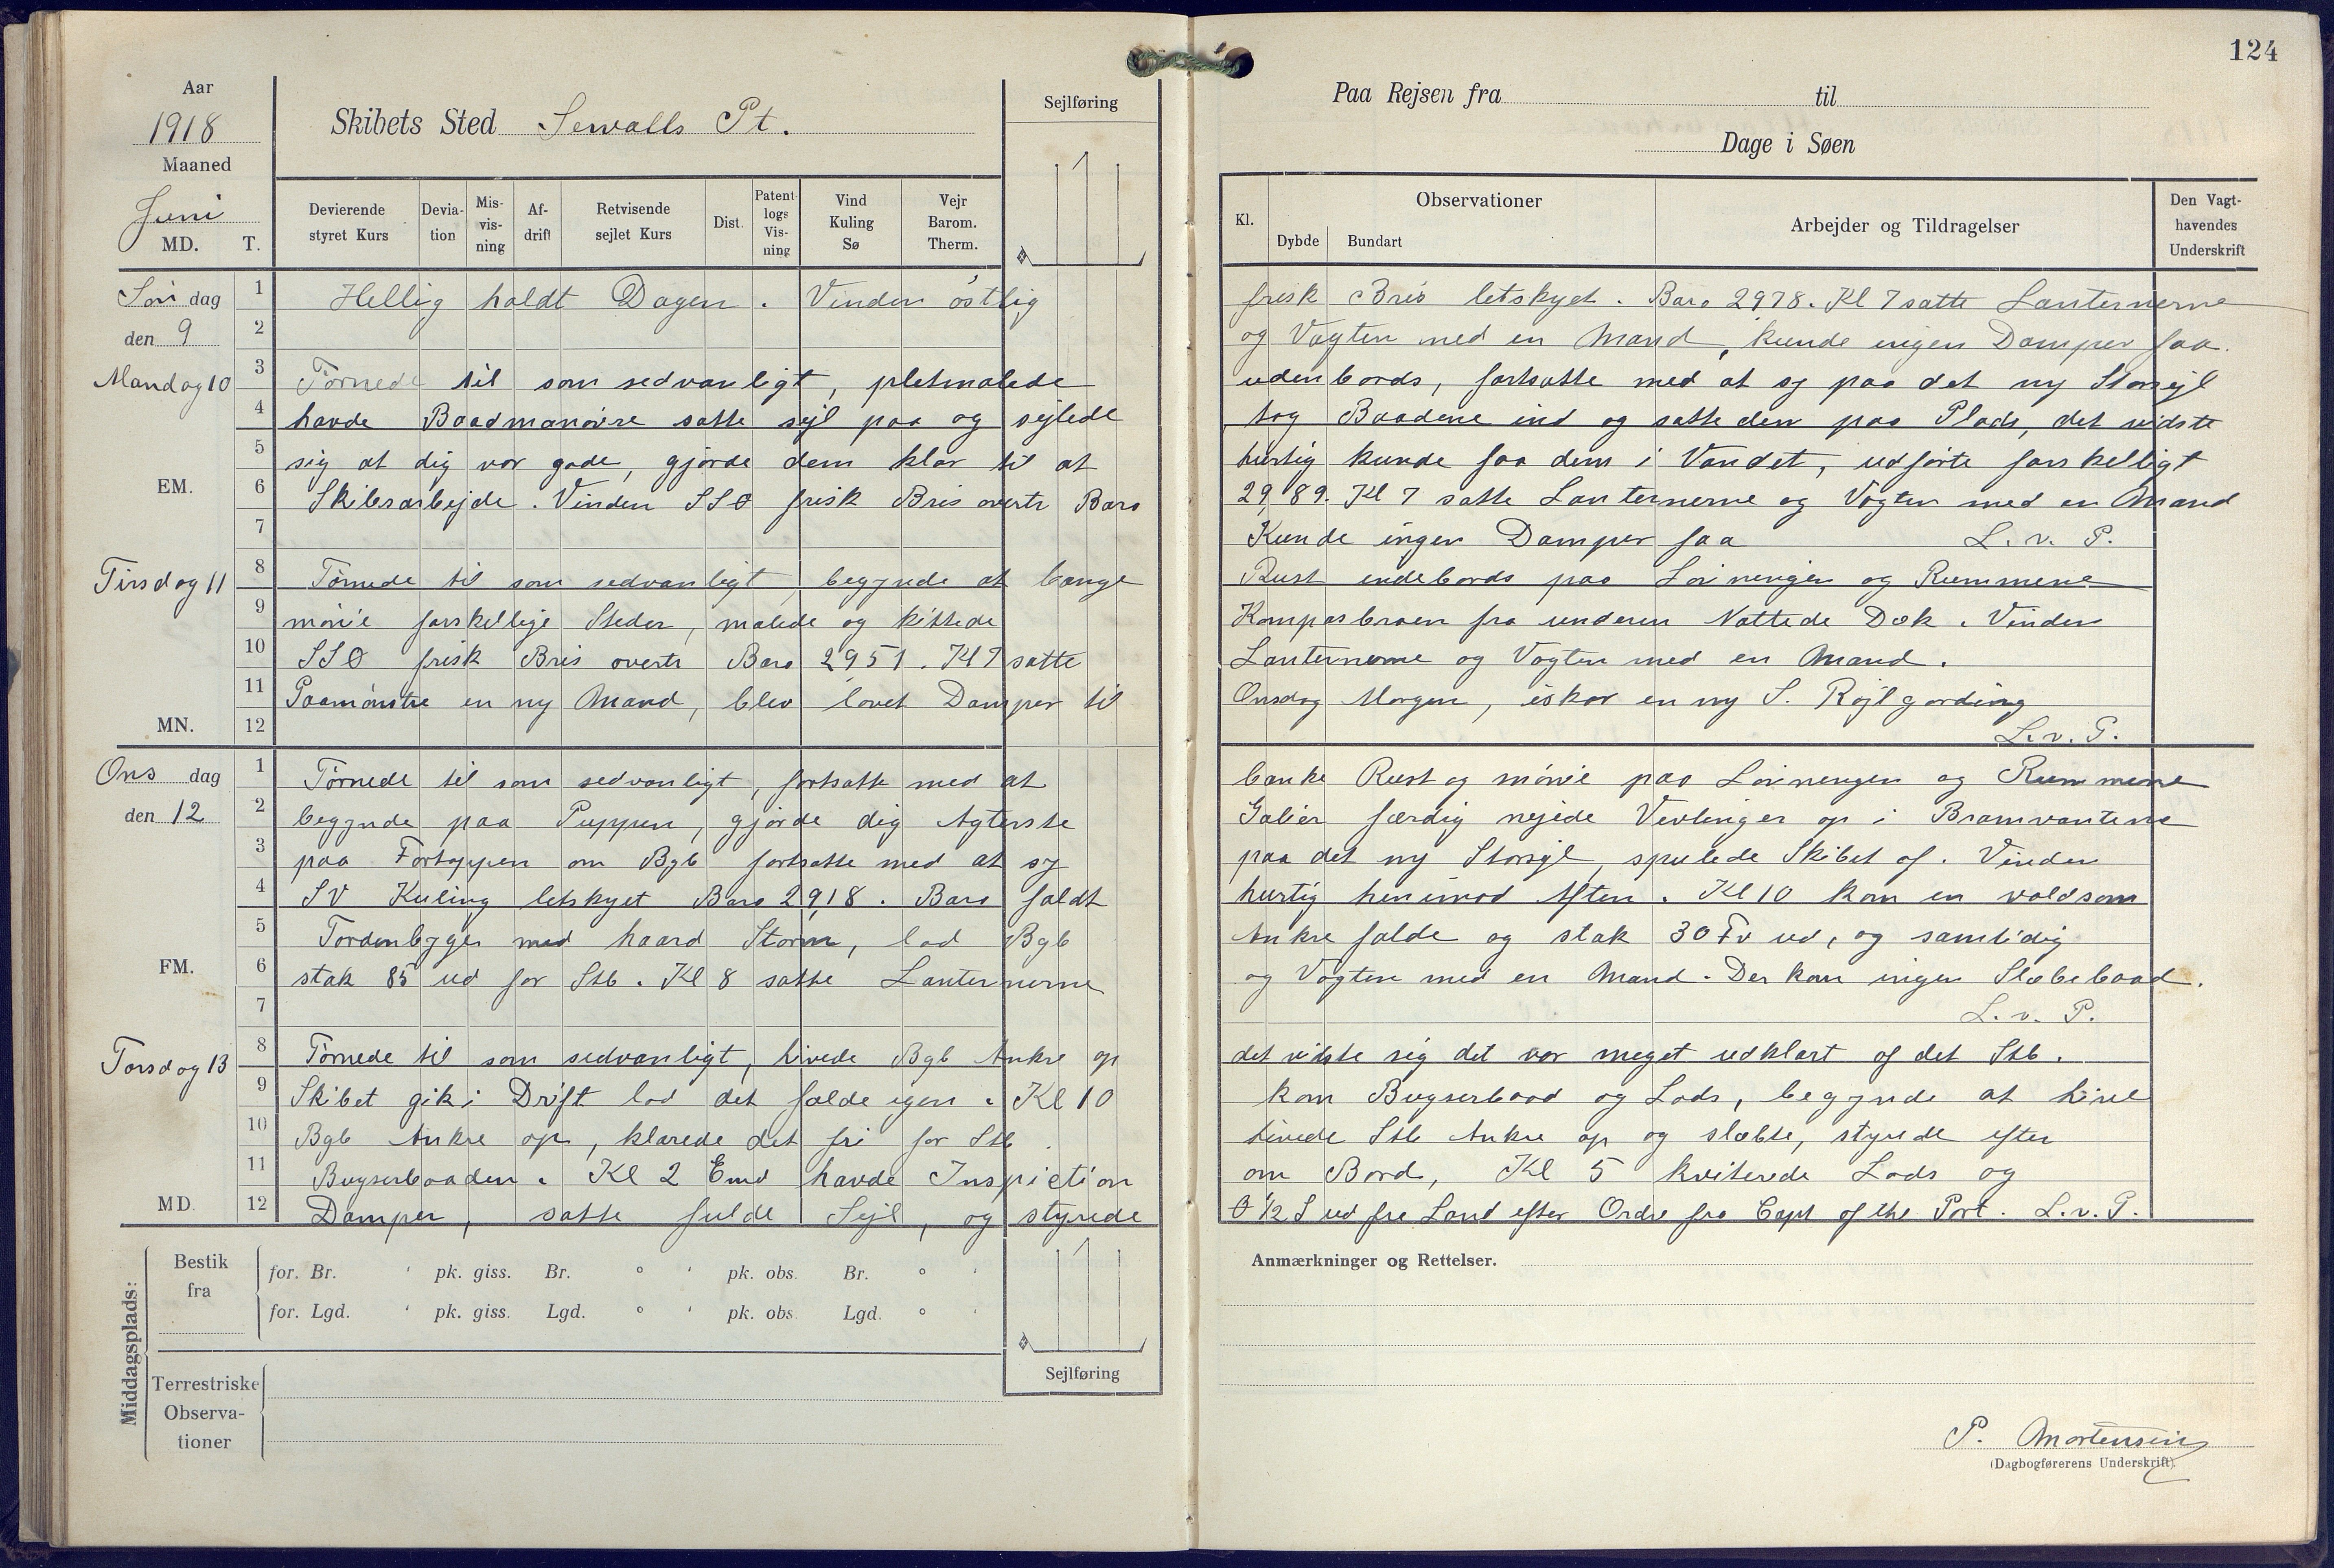 124
Aar
1918
Maaned
Juni
MD. T.
Skibets Sted Sewalls Pt.
Sejlføring
Devierende styret Kurs
Deviation
Misvisning
Afdrift
Retvisende sejlet Kurs
Dist.
Patent logs Visning
Vind Kuling Sø
Vejr Barom. Therm.
Paa Rejsen fra til
Dage i Søen
Kl.
Observationer
Dybde Bundart
Arbejder og Tildragelser
Den Vagthavendes Underskrift
Søn dag 1 Hellig holdt Dagen. Vinden östlig frisk Bris letskyet. Baro 2978. Kl 7 satte Lanternerne
den 9 2 og Vagten med en Mand, kunde ingen Damper faa.
Mandag 10 3 Törnede til som sedvanligt, pletmalede udenbords, fortsatte med at sy paa det ny Storsejl
4 havde Baadmanövre satte sejl paa og sejlede tog Baadene ind og satte dem paa Plads, det vidste
5 sig at dig var gode, gjorde dem klar til at hurtig kunde faa dem i Vandet, udförte forskelligt
EM. 6 Skibsarbejde. Vinden SSO frisk Bris overtr Baro 29,89. Kl 7 satte Lanternerne og Vagten med en Mand
7 Kunde ingen Damper faa L. v. P.
Tirsdag 11 8 Törnede til som sedvanligt, begynde at bange Rust indebords paa Lönningen og Rummene
9 mönie forskellige Steder, malede og kittede Kompasbroen fra underen Nattede Dæk. Vinden
10 SSO frisk Bris overtr Baro 2951. Kl 7 satte Lanternerne og Vagten med en Mand.
11 Paamönstre en ny Mand, blev lovet Damper til Onsdag Morgen, iskar en ny S. Röjlgording
MN. 12 L. v. P.
Ons dag 1 Törnede til som sedvanligt, fortsatte med at banke Rust og mönie paa Lönningen og Rummene
den 12 2 begynde paa Puppen, gjorde dig Agterste Galier færdig nejede Vevlinger op i Bramvantene
3 paa Fortoppen om Bgb fortsatte med at sy paa det ny Storsejl, spulede Skibet af. Vinden
4 SV Kuling letskyet Baro 2918. Baro faldt hurtig henimod Aften. Kl 10 kom en voldsom
5 Tordenbyge med haard Storm, lod Bgb Ankre falde og stak 30 Fv ud, og samtidig
FM. 6 stak 85 ud for Stb. Kl 8 satte Lanternerne og Vagten med en Mand. Der kom ingen Slæbebaad.
7 L. v. P.
Torsdag 13 8 Törnede til som sedvanligt, hivede Bgb Ankre op det viste sig det var meget udklart af det Stb.
9 Skibet gik i Drift lod det falde igen. Kl 10 kom Bugserbaad og Lods, begynde at hive
10 Bgb Ankre op, klarede det fri for Stb. hivede Stb Ankre op og slæbte, styrede efter
11 Bugserbaaden. Kl 2 Emd havde Inspiction om Bord, Kl 5 kviterede Lods og
MD. 12 Damper, satte fulde Sejl, og styrede O ½ S ud fra Land efter Ordre fra Capt of the Port. L. v. P.
Middagsplads:
Bestik fra
for. Br. ' pk. giss. Br. ° ' pk. obs. Br. ° '
for. Lgd. ' pk. giss. Lgd. ° ' pk. obs. Lgd. ° '
Sejlføring
Terrestriske Observationer
Anmærkninger og Rettelser.
P. Mortensen
(Dagbogførerens Underskrift).